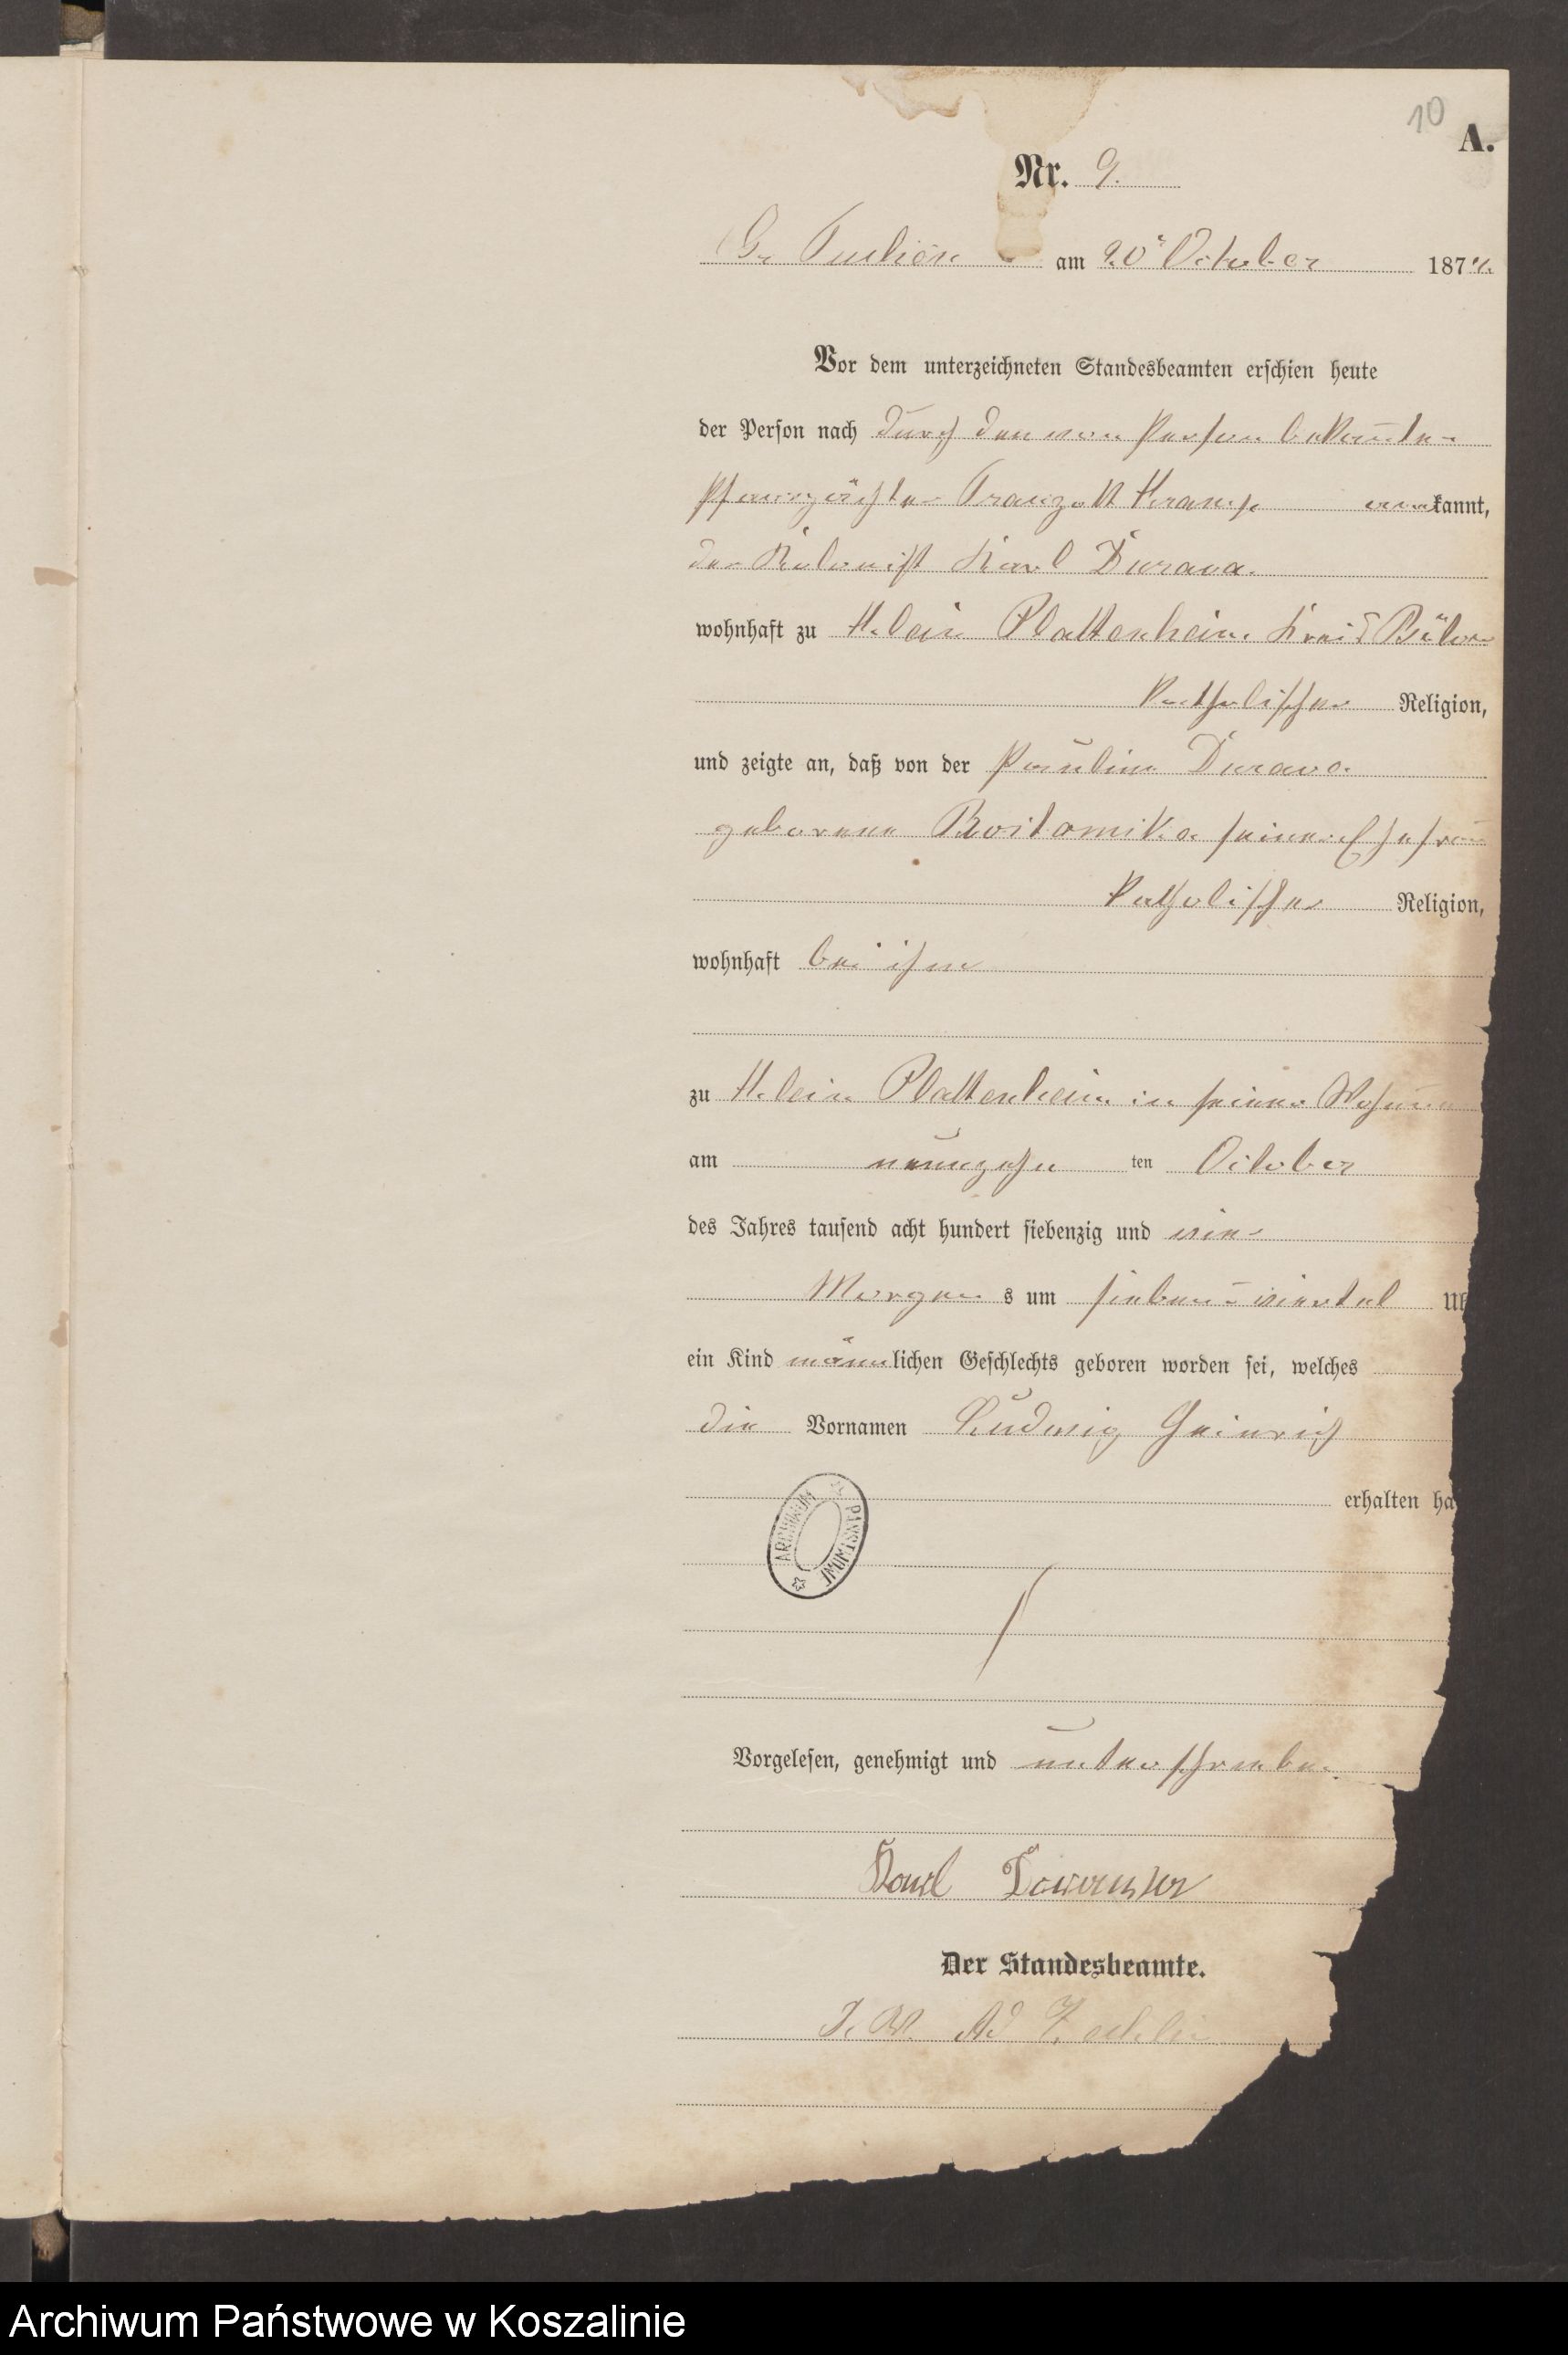 10
A.
Nr. 9.
Gr Tuchen am 20ᵗ October 1874.
Vor dem unterzeichneten Standesbeamten erschien heute
der Person nach durch den von Person bekannten
Traugott Kramp kannt,
der Kolonist Karl Durava
wohnhaft zu Klein Plattenheim Kreis Bütow
katholischer Religion,
und zeigte an, daß von der Pauline Durava
geborene seiner Ehefrau
katholischer Religion,
wohnhaft bei ihm
zu Klein Plattenheim in seiner Wohnung
am neunzehn ten October
des Jahres tausend acht hundert siebenzig und vier
Morgens um sieben viertel Uh
ein Kind männlichen Geschlechts geboren worden sei, welches
die Vornamen Ludwig Heinrich
erhalten ha
ARCHIWUM PAŃSTWOWE
Vorgelesen, genehmigt und unterschrieben
Karl
Der Standesbeamte.
Archiwum Państwowe w Koszalinie